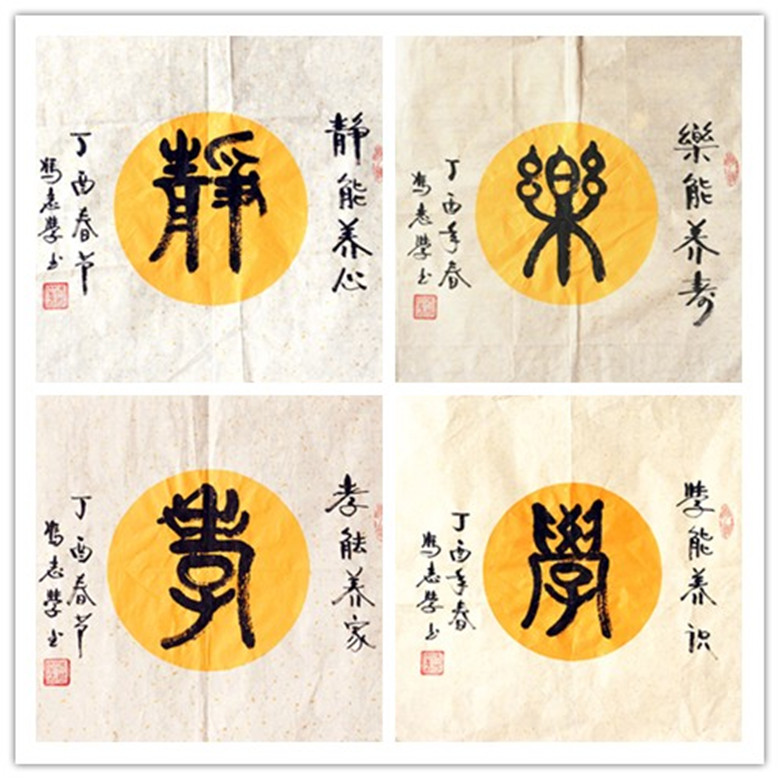 静能养心
靜
丁酉春节
馮志學书
樂能养寿
樂
丁酉年春
馮志學书
孝能养家
孝
丁酉春节
馮志學书
學能养识
學
丁酉年春
馮志學书